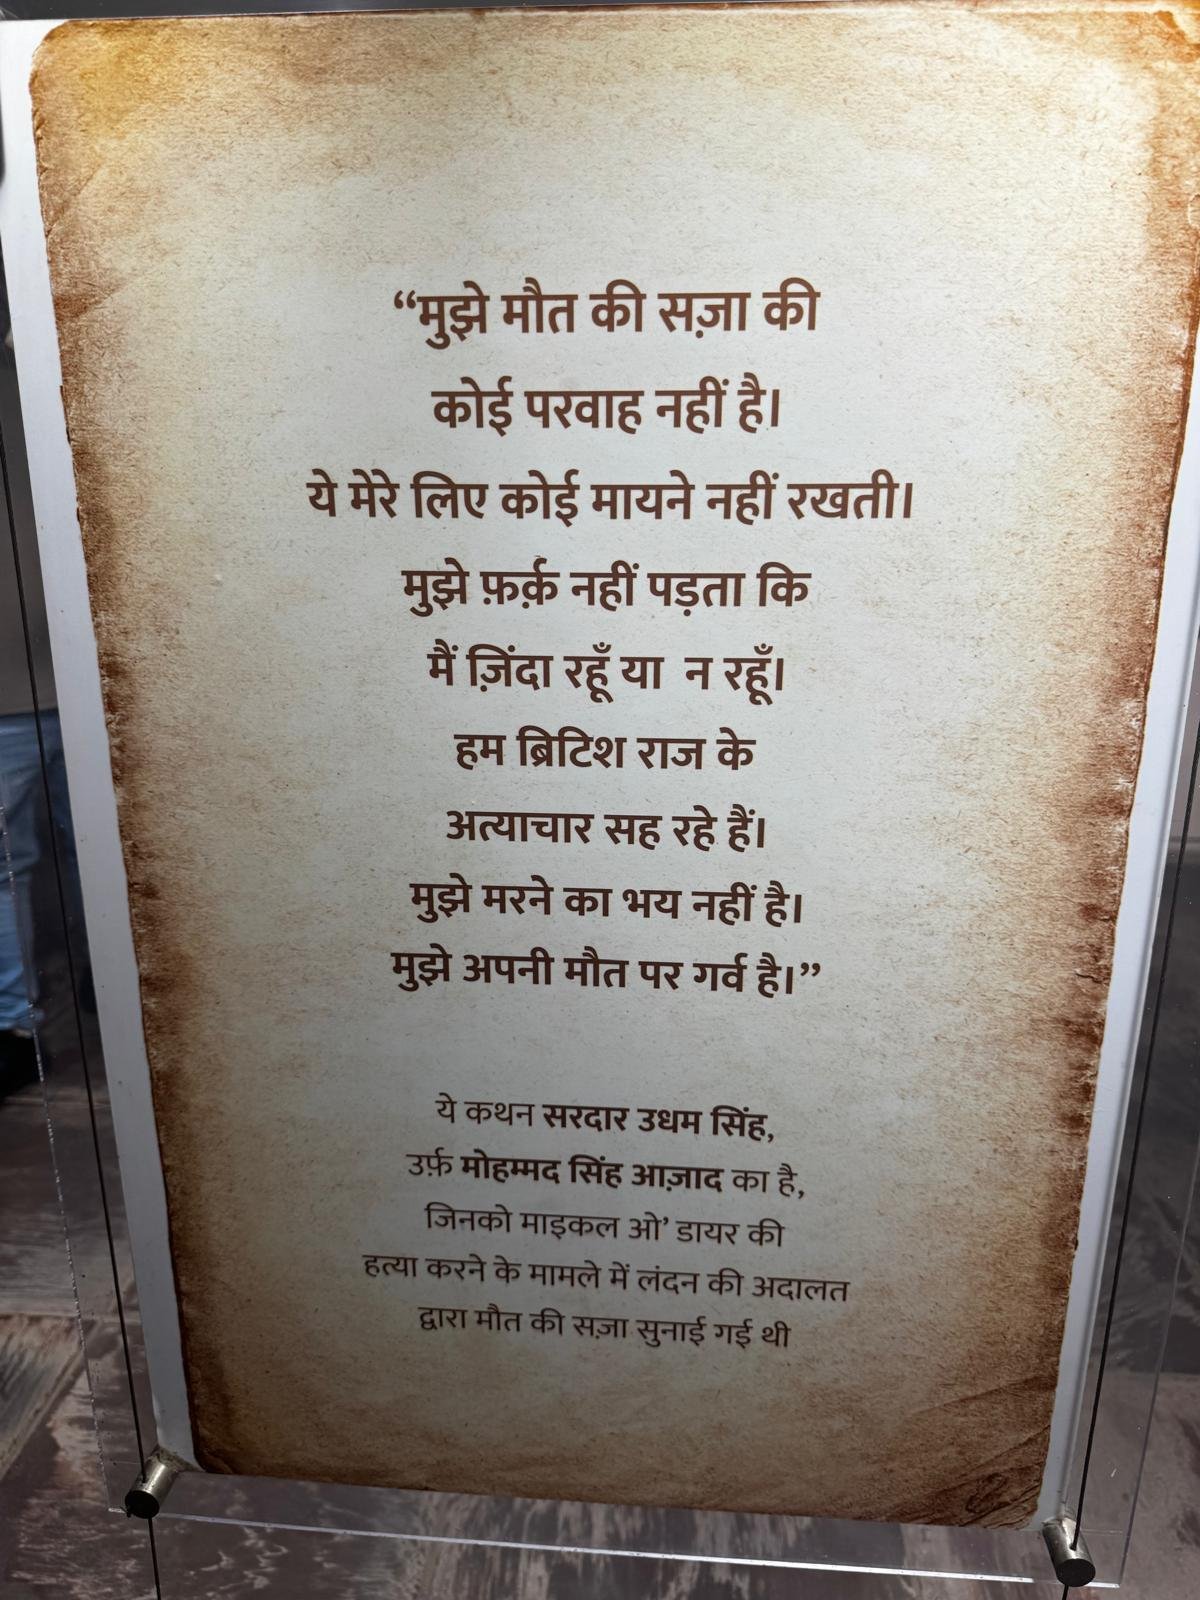 “मुझे मौत की सज़ा की
कोई परवाह नहीं है।
ये मेरे लिए कोई मायने नहीं रखती।
मुझे फ़र्क़ नहीं पड़ता कि
मैं ज़िंदा रहूँ या न रहूँ।
हम ब्रिटिश राज के
अत्याचार सह रहे हैं।
मुझे मरने का भय नहीं है।
मुझे अपनी मौत पर गर्व है।”
ये कथन सरदार उधम सिंह,
उर्फ़ मोहम्मद सिंह आज़ाद का है,
जिनको माइकल ओ’ डायर की
हत्या करने के मामले में लंदन की अदालत
द्वारा मौत की सज़ा सुनाई गई थी